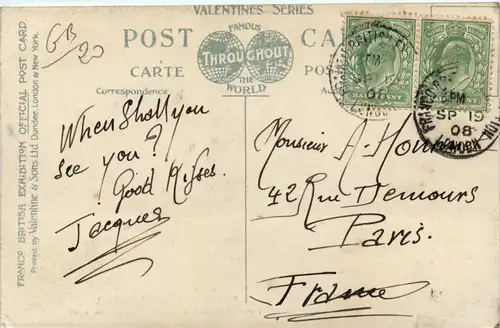 VALENTINES SERIES
GB
20
POST CARD
FAMOUS
THROUGHOUT
THE WORLD
CARTE
Correspondence
FRANCO BRITISH EXHIBITION OFFICIAL POST CARD
Printed by Valentine & Sons Ltd Dundee London & New York.
HALFPENNY
PM
SP 19
08
08
When Shall you
see you?
Good Kisses.
Jacques
Monsieur A.
42 Rue Demours
Paris.
France